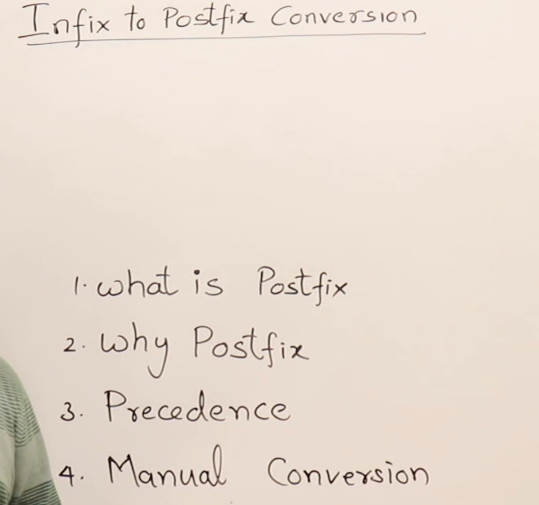 Infix to Postfix Conversion
1. what is Postfix
2. Why Postfix
3. Precedence
4. Manual Conversion